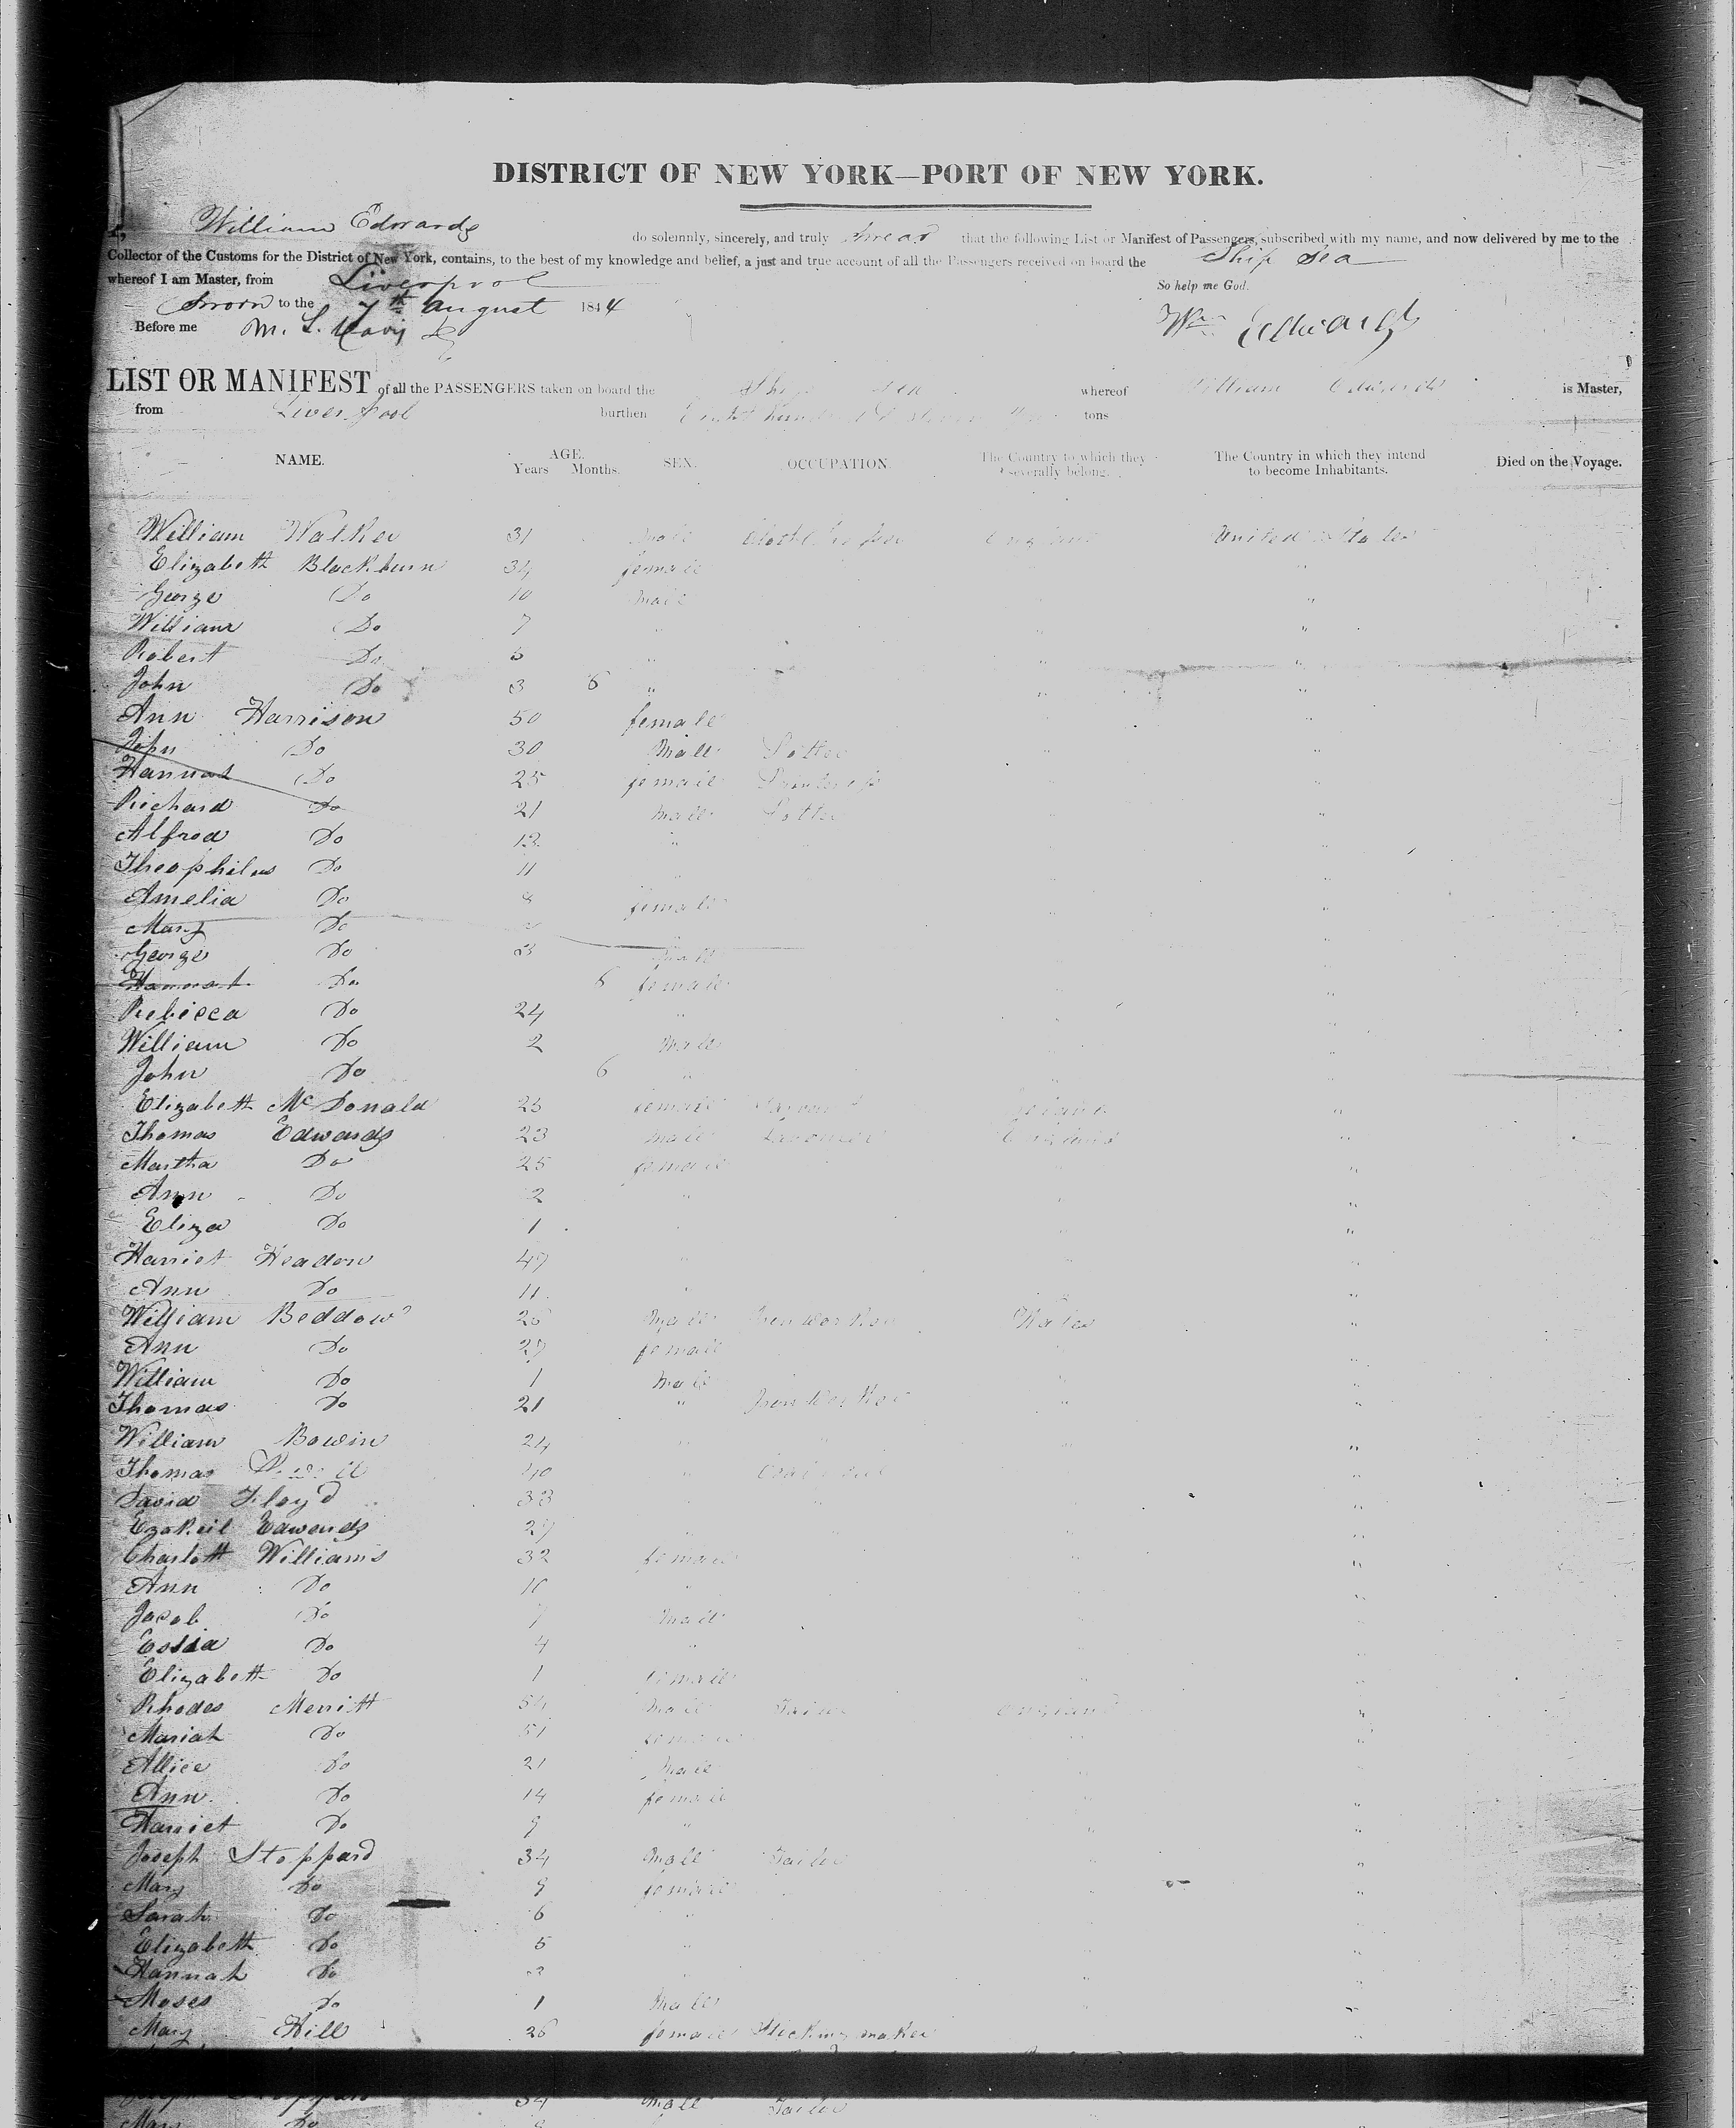 DISTRICT OF NEW YORK—PORT OF NEW YORK.
I, William Edwards do solemnly, sincerely, and truly swear that the following List or Manifest of Passengers, subscribed with my name, and now delivered by me to the
Collector of the Customs for the District of New York, contains, to the best of my knowledge and belief, a just and true account of all the Passengers received on board the Ship Sea
whereof I am Master, from Liverpool So help me God.
Sworn to the 7th August 1844
Before me M. L. Davis Wm Edwards
LIST OR MANIFEST of all the PASSENGERS taken on board the Ship Sea whereof William Edwards is Master,
from Liverpool burthen Eight hundred tons
NAME. AGE. Years Months. SEX. OCCUPATION. The Country to which they severally belong. The Country in which they intend to become Inhabitants. Died on the Voyage.
William Walker 31 male England United States
Elizabeth Blackburn 34 female "
George Do 10 male "
William Do 7 " "
Robert Do " "
John Do 3 6 " " "
Ann Harrison 50 female "
John Do 30 Male Potter " "
Hannah Do 25 female "
Richard Do 21 male Potter "
Alfred Do 12 " "
Theophilus Do 11 " "
Amelia Do 8 female " "
Mary Do "
George Do 3 male "
Hannah Do 6 female "
Rebecca Do 24 " "
William Do 2 male "
John Do 6 " "
Elizabeth McDonald 23 female Servant Ireland "
Thomas Edwards 23 male Labourer England "
Martha Do 25 female "
Ann Do 2 " "
Eliza Do 1 " "
Harriet Headon 49 " "
Ann Do 11 " "
William Beddow 26 male Iron Worker Wales "
Ann Do 27 female "
William Do 1 male " "
Thomas Do 21 " Iron Worker " "
William Bowin 24 " "
Thomas Powell 40 " "
David Floyd 33 "
Ezakeil Edwards 27 " "
Charlott Williams 32 female " "
Ann Do 10 " "
Jacob Do 7 male "
Essia Do 4 " "
Elizabeth Do 1 female " "
Rhodes Merritt 54 male Tailor England "
Mariah Do 51 female " "
Allice Do 21 male "
Ann Do 14 female " "
Harriet Do 9 " " "
Joseph Stoppard 34 Male Tailor "
Mary Do 9 female "
Sarah Do 6 " "
Elizabeth Do 5 " "
Hannah Do " "
Moses Do 1 Male " "
Mary Hill 26 female Stocking maker "
Joseph Stoppard 34 Male Tailor
Mary Do 9